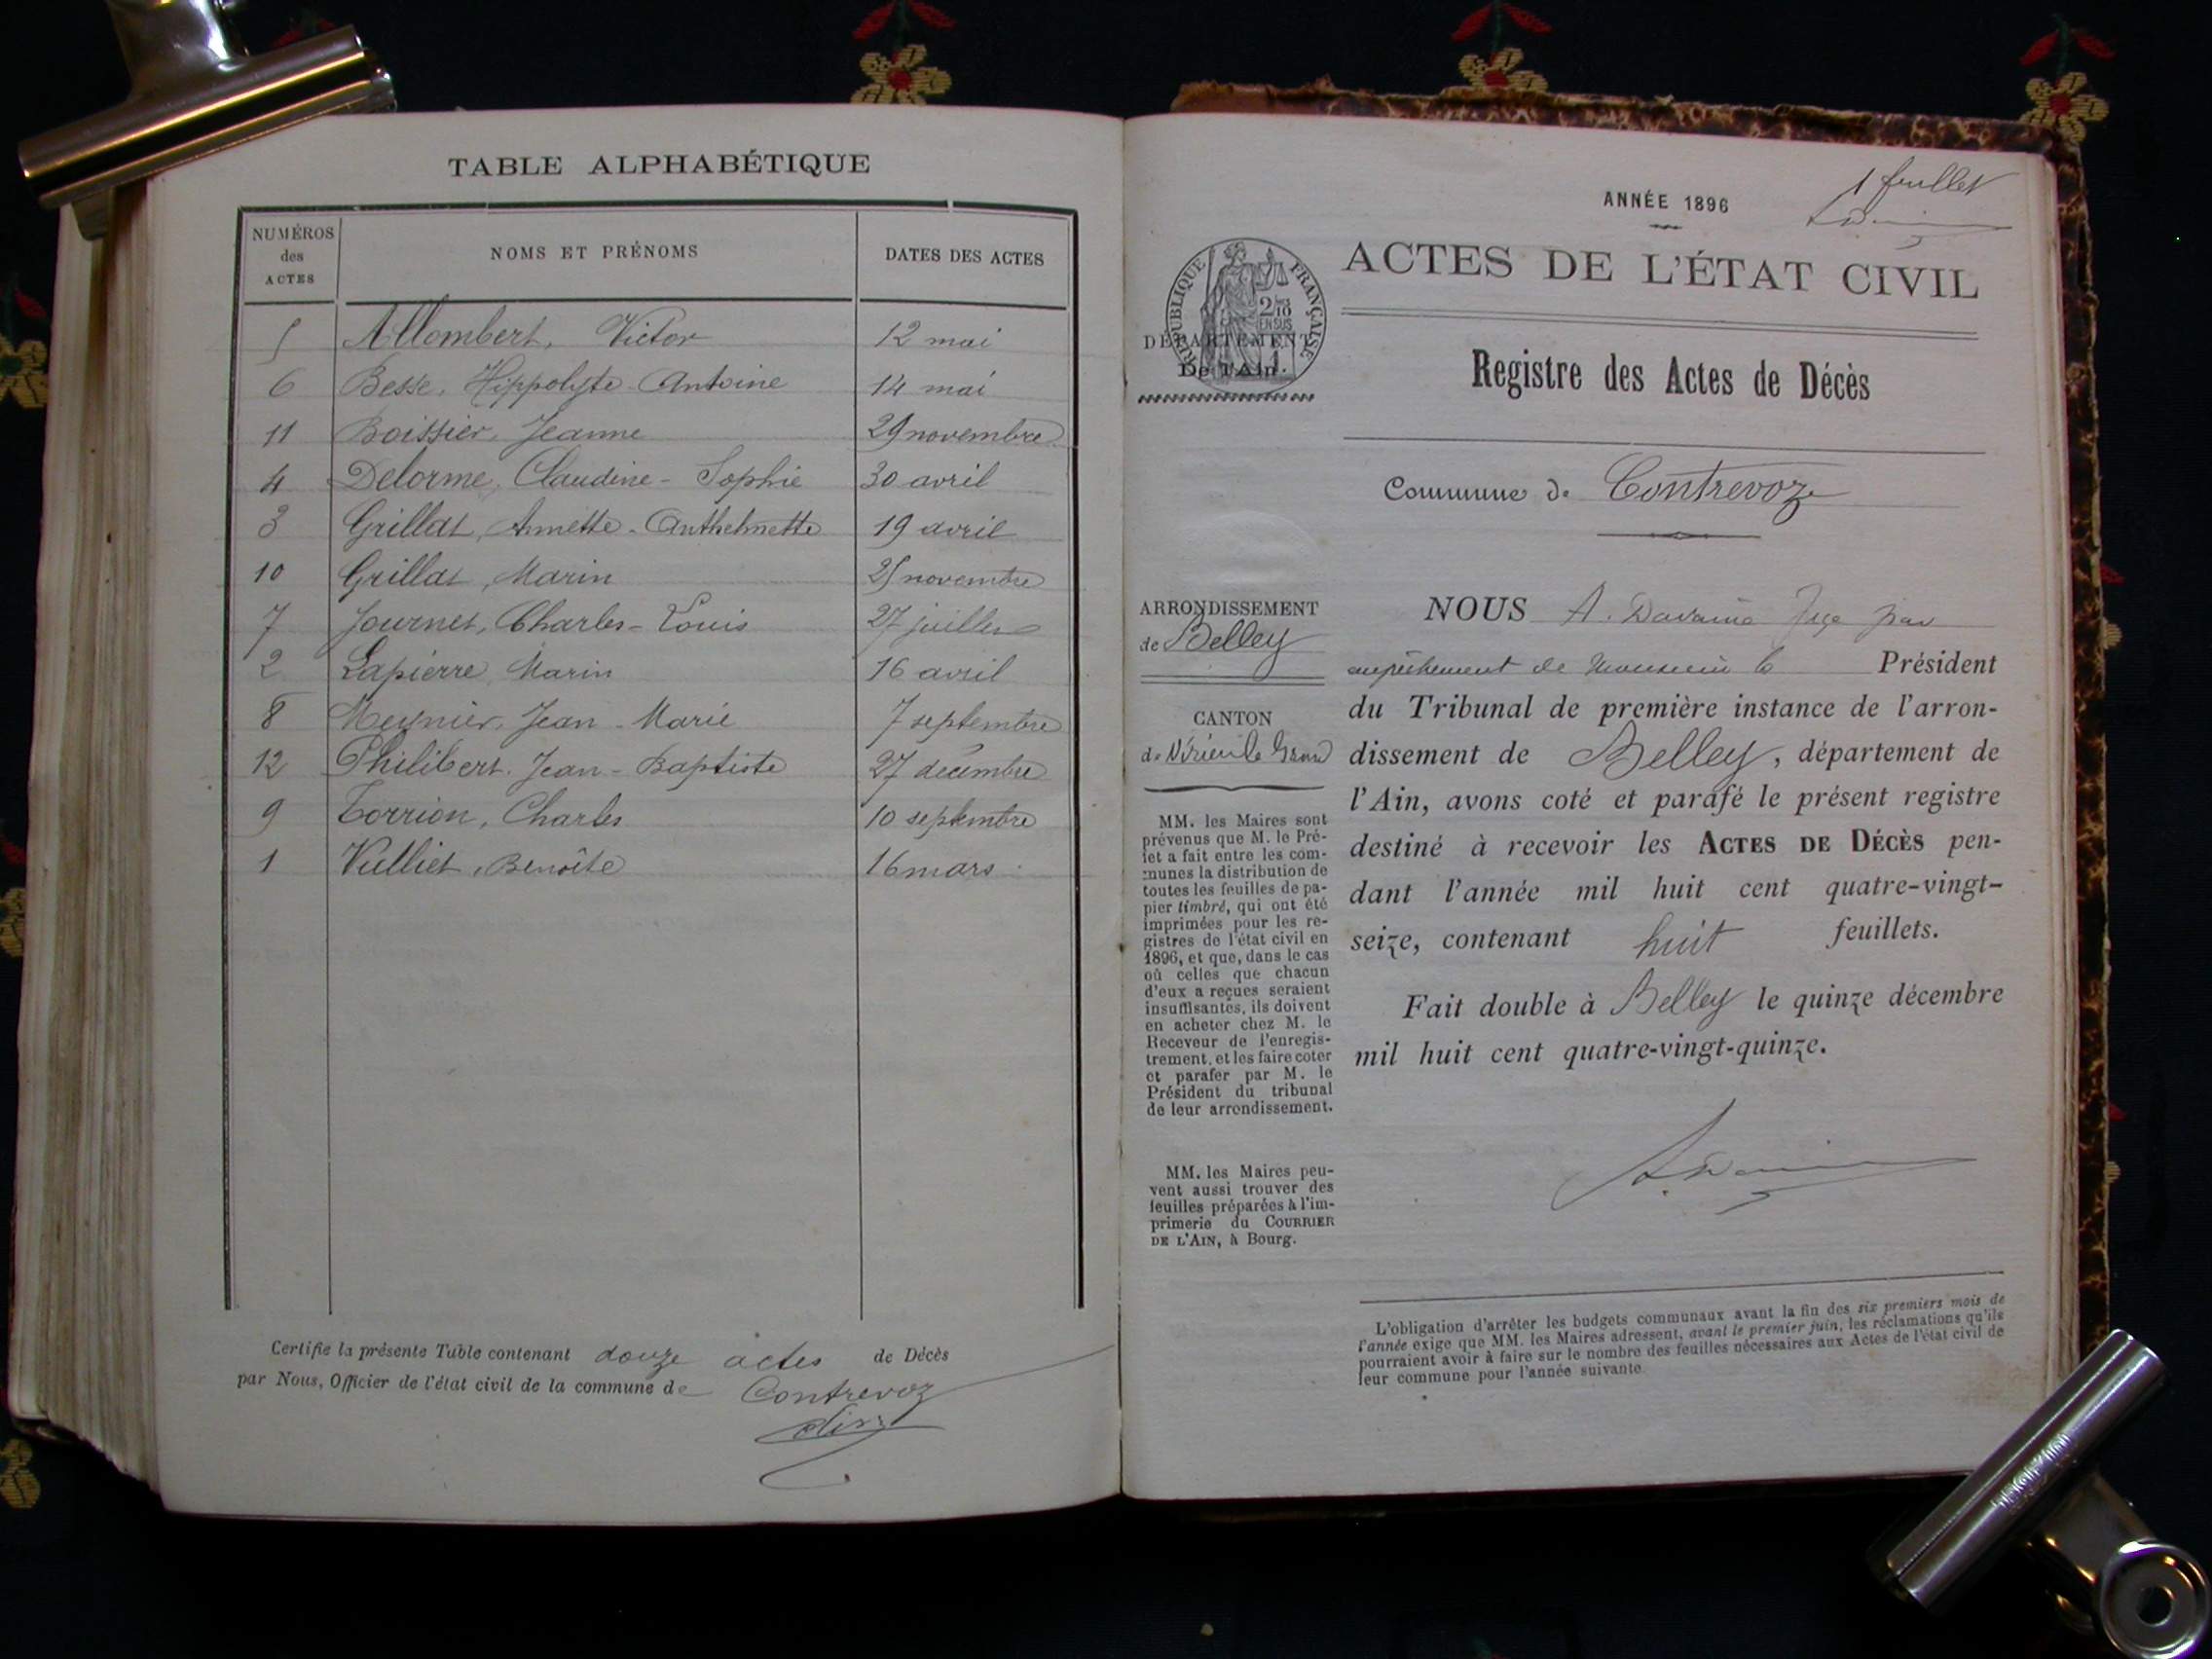 TABLE ALPHABÉTIQUE
NUMÉROS des ACTES
NOMS ET PRÉNOMS
DATES DES ACTES
5 Allombert, Victor 12 mai
6 Besse, Hippolyte-Antoine 14 mai
11 Boissier, Jeanne 29 novembre
4 Delorme, Claudine-Sophie 30 avril
3 Grillat, Annette-Anthelmette 19 avril
10 Grillat, Marin 25 novembre
7 Journet, Charles-Louis 27 juillet
2 Lapierre, Marin 16 avril
8 Meynier, Jean-Marie 7 septembre
12 Philibert, Jean-Baptiste 27 décembre
9 Torrion, Charles 10 septembre
1 Vulliet, Benoîte 16 mars
Certifie la présente Table contenant douze actes de Décès
par Nous, Officier de l'état civil de la commune de Contrevoz
1 feuillet
ANNÉE 1896
RÉPUBLIQUE FRANÇAISE
2/10 EN SUS
DÉPARTEMENT
De l'Ain.
ACTES DE L'ÉTAT CIVIL
Registre des Actes de Décès
Commune de Contrevoz
ARRONDISSEMENT
de Belley
CANTON
de Virieu le Grand
MM. les Maires sont
prévenus que M. le Pré-
fet a fait entre les com-
munes la distribution de
toutes les feuilles de pa-
pier timbré, qui ont été
imprimées pour les re-
gistres de l'état civil en
1896, et que, dans le cas
où celles que chacun
d'eux a reçues seraient
insuffisantes, ils doivent
en acheter chez M. le
Receveur de l'enregis-
trement, et les faire coter
et parafer par M. le
Président du tribunal
de leur arrondissement.
MM. les Maires peu-
vent aussi trouver des
feuilles préparées à l'im-
primerie du COURRIER
DE L'AIN, à Bourg.
NOUS A. Juge par
empêchement de Monsieur le Président
du Tribunal de première instance de l'arron-
dissement de Belley, département de
l'Ain, avons coté et parafé le présent registre
destiné à recevoir les ACTES DE DÉCÈS pen-
dant l'année mil huit cent quatre-vingt-
seize, contenant huit feuillets.
Fait double à Belley le quinze décembre
mil huit cent quatre-vingt-quinze.
L'obligation d'arrêter les budgets communaux avant la fin des six premiers mois de
l'année exige que MM. les Maires adressent, avant le premier juin, les réclamations qu'ils
pourraient avoir à faire sur le nombre des feuilles nécessaires aux Actes de l'état civil de
leur commune pour l'année suivante.